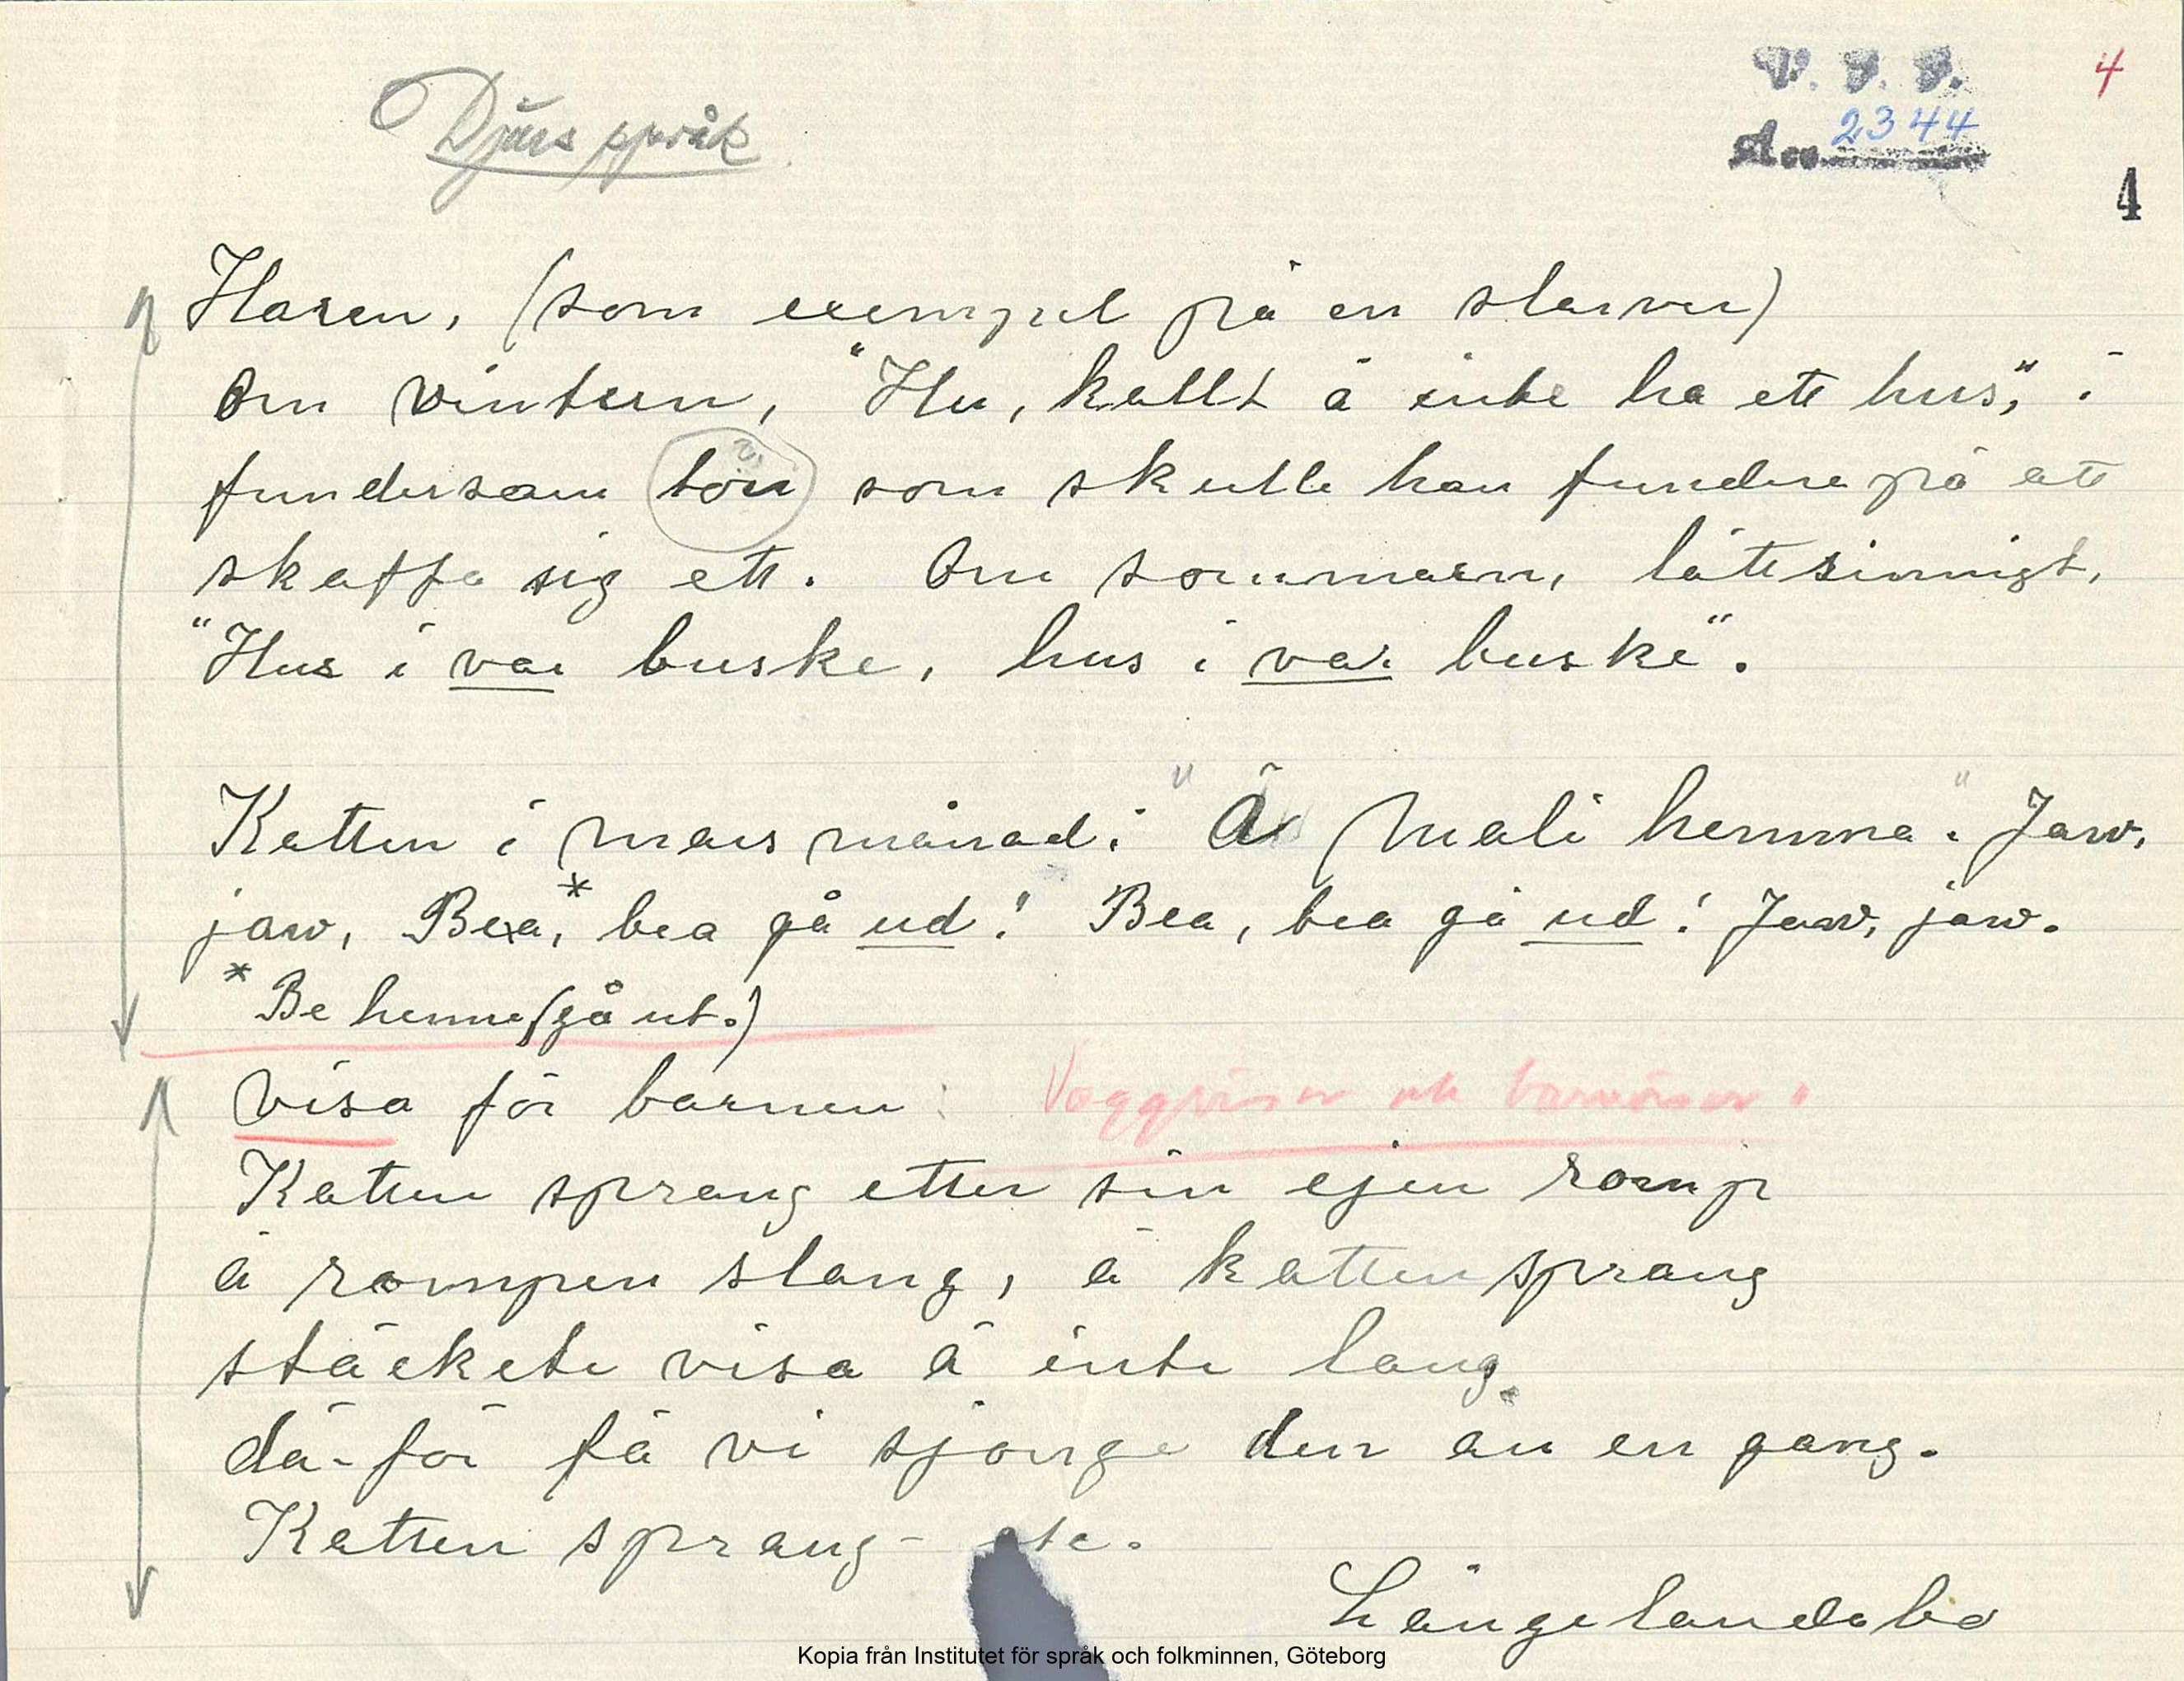 Djurs språk
V. F. F.
Acc. 2344
4
4
Haren, (som exempel på en slarver)
Om vintern, "Hu, kallt å inte ha ett hus", i
fundersam ton som skulle han fundera på att
skaffa sig ett. Om sommarn, lättsinnigt,
"Hus i var buske, hus i var buske".
Katten i mars månad: "Ä Mali hemma". Jaw,
jaw, Bea,* bea gå ud! Bea, bea gå ud! Jaw, jaw.
* Be henne (gå ut.)
Visa för barnen: Vaggvisor och barnvisor.
Katten sprang etter sin ejen romp
å rompen slang, å katten sprang
stäckete visa ä inte lang.
dä-för få vi sjonge den än en gang.
Katten sprang - etc.
Långelandsbo
Kopia från Institutet för språk och folkminnen, Göteborg